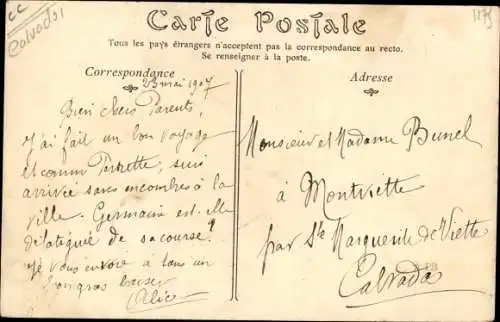 CC
Calvados
Carte Postale
Tous les pays étrangers n'acceptent pas la correspondance au recto.
Se renseigner à la poste.
Correspondance
Adresse
23 mai 1907
Bien chers Parents,
J'ai fait un bon voyage
et comm Perrette, suis
arrivée sans encombres à la
ville. Germain est-elle
délatiguée de sa course?
Je vous envoie à tous un
bon gros baiser
Alice
Monsieur et Madame Bunel
à Montviette
par Ste Marguerite de Viette
Calvados